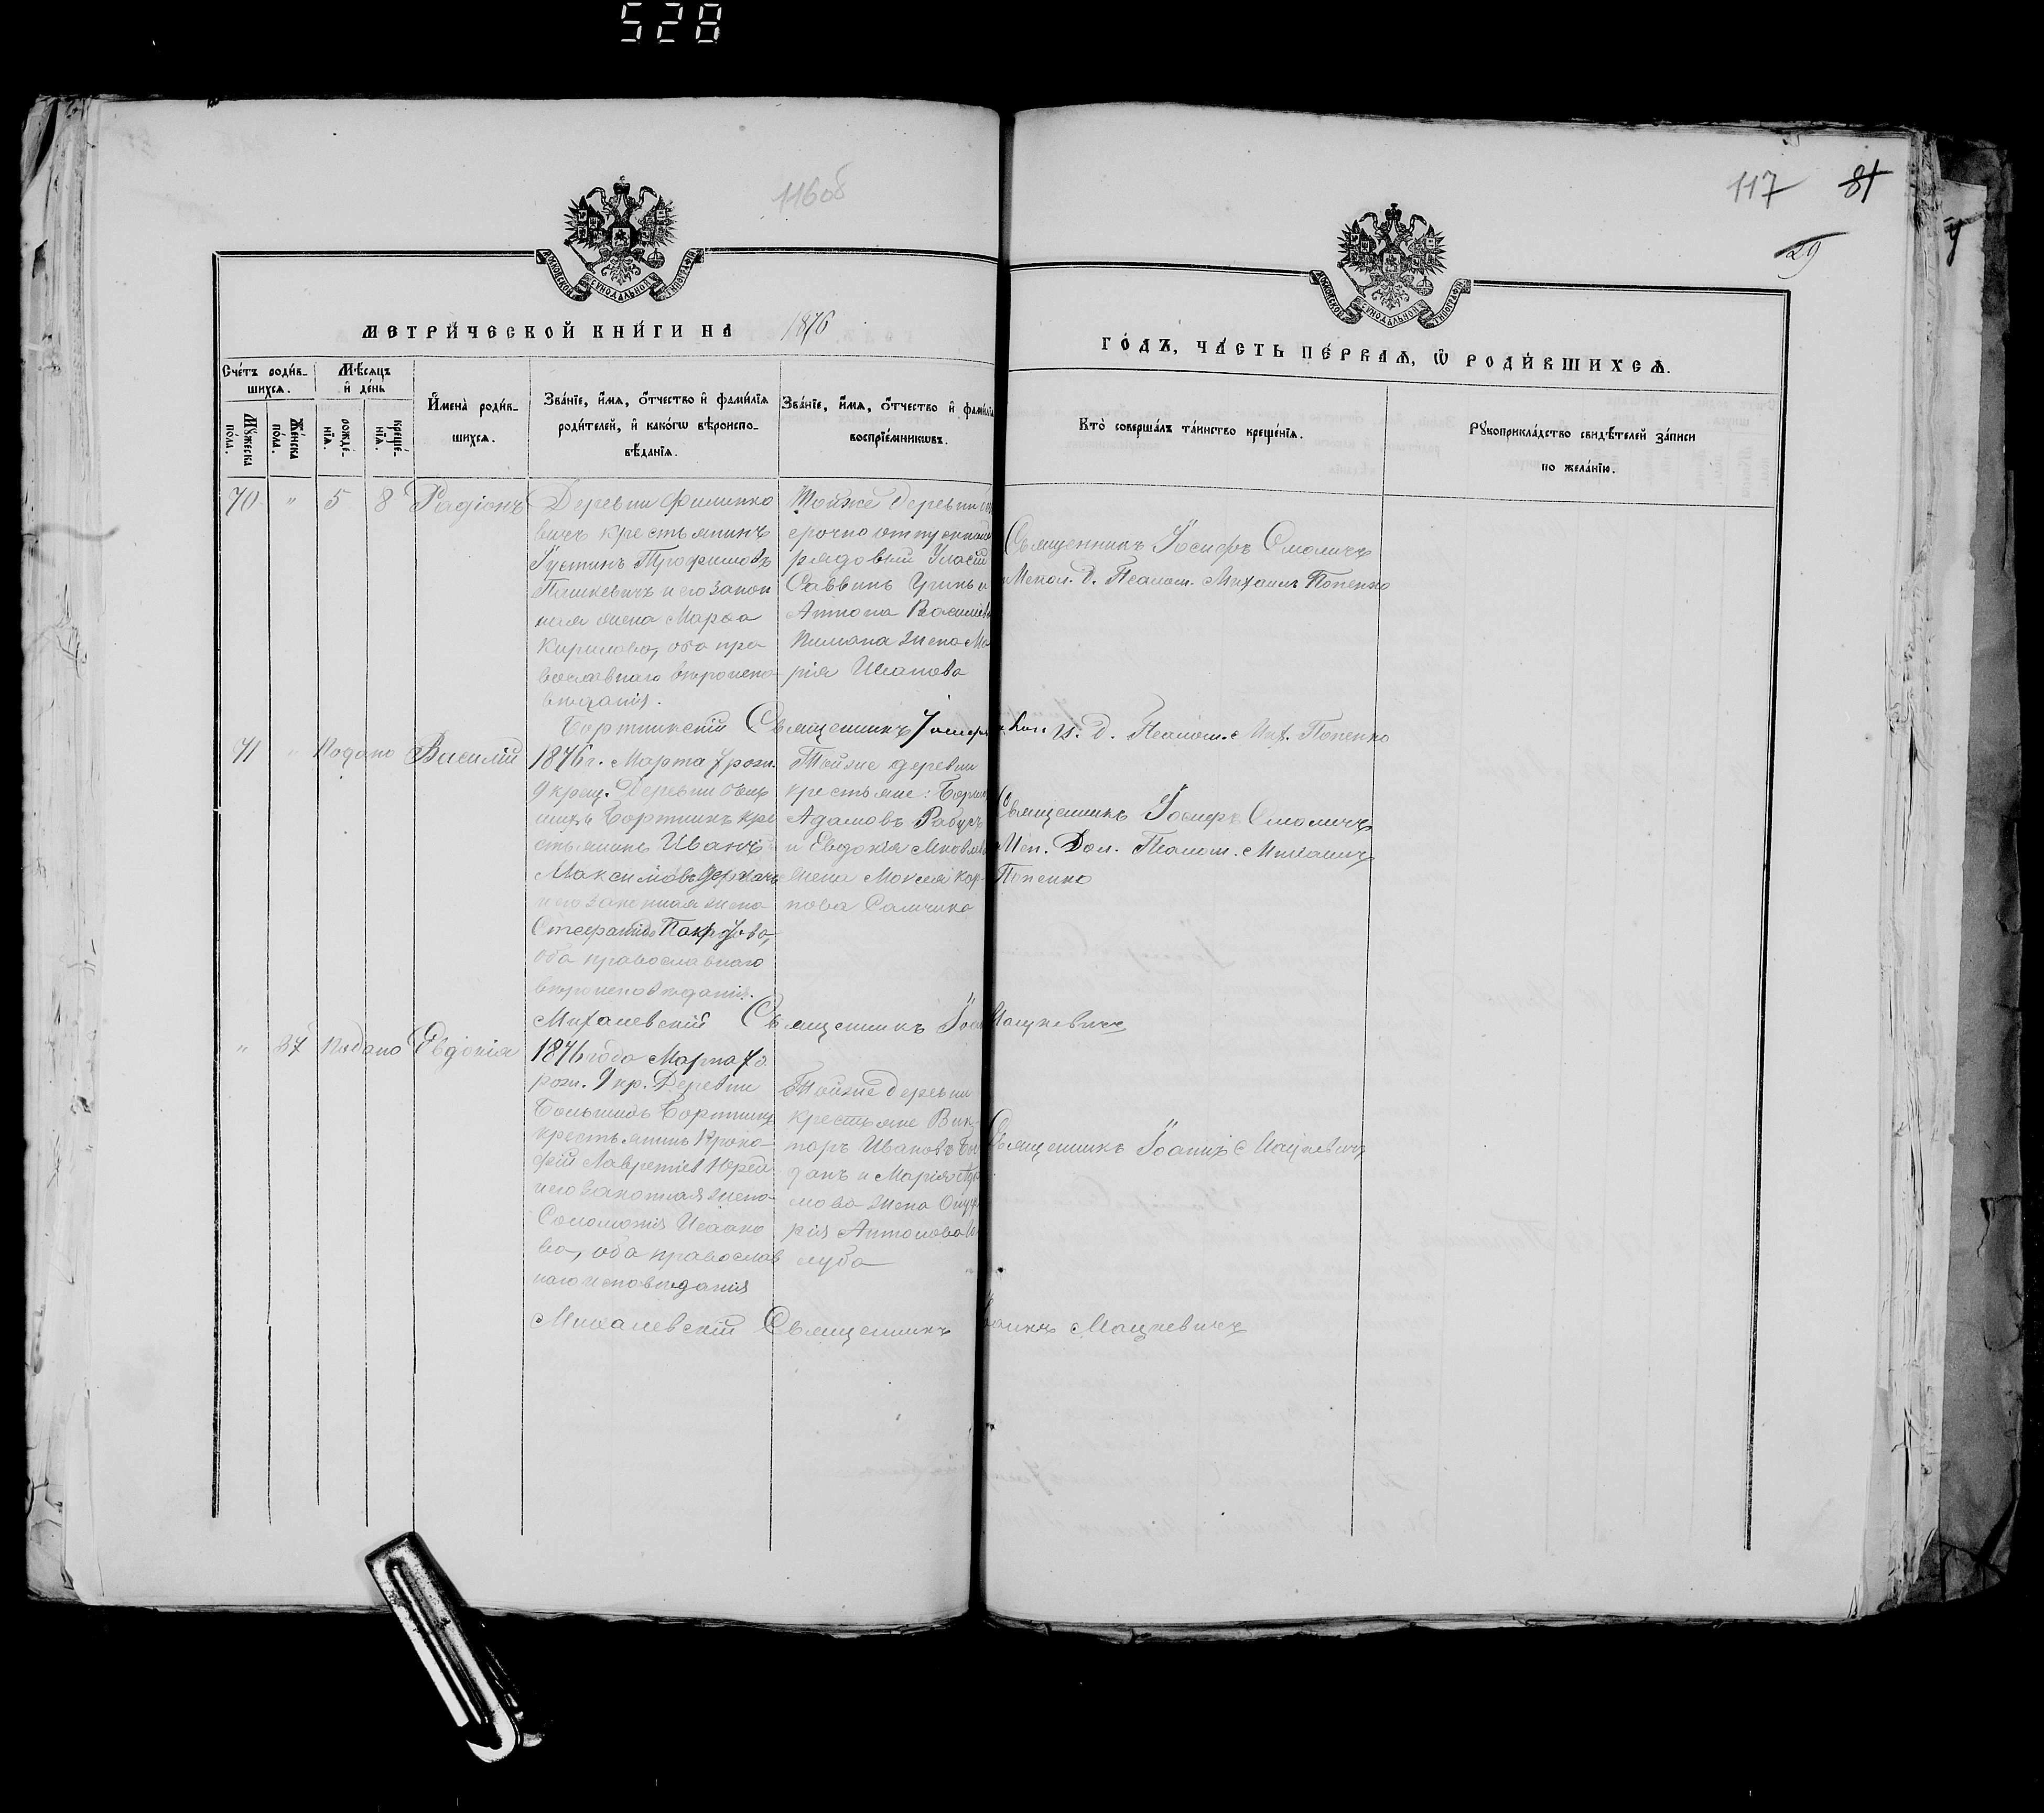 528
116об
117 81
29
МОСКОВСКОЙ СУНОДАЛЬНОЙ ТИПОГРАФІИ
МОСКОВСКОЙ СУНОДАЛЬНОЙ ТИПОГРАФІИ
МЕТРИ́ЧЕСКОЙ КНИ́ГИ НА 1876
ГО́ДЪ, ЧА́СТЬ ПЕ́РВАѦ, Ѡ҆ РОДИ́ВШИХСѦ.
Сче́тъ роди́в-
шихсѧ.
Мѣ́сѧцъ
и҆ де́нь
Мꙋ́жеска
по́ла.
Же́нска
по́ла.
рожде́-
нїѧ.
креще́-
нїѧ.
И҆мена̀ роди́в-
шихсѧ.
Зва́нїе, и҆́мѧ, ѻ҆́тчество и҆ фами́лїѧ
роди́телей, и҆ како́гѡ вѣроиспо-
вѣ́данїѧ.
Зва́нїе, и҆́мѧ, ѻ҆́тчество и҆ фами́лїѧ
воспрїе́мникѡвъ.
Кто̀ соверша́лъ та́инство креще́нїѧ.
Рꙋкоприкла́дство свидѣ́телей за́писи
по жела́нїю.
70 " 5 8 Радіонъ
Деревни Филипко
вичъ крестьянинъ
Іустинъ Трофимовъ
Пашкевичъ и его закон
ная жена Марѳа
Кирилова, оба пра
вославнаго вѣроиспо
вѣданія.
Тойже деревни
срочно отпускной
рядовый
Саввинъ
Василіев
жена Ма
рія Иванова
Священникъ Іосифъ Смоличъ
Испол. д. Псалом. Михаилъ Попенко
Бортникскій Священникъ Іосифъ И. д. Псалом. Мих. Попенко
71 " Подано Василій
1876 г. Марта 7 рож.
9 крещ. Деревни
Бортникъ кре
стьянинъ Иванъ
Максимовъ Деркачъ
и его законная жена
Стефанида
оба православнаго
вѣроисповѣданія.
Тойже деревни
крестьяне:
Адамовъ
и Евдокія
жена Моисея Кар-
пова
Священникъ Іосифъ Смоличъ
Исп. Дол. Псалом. Михаилъ
Попенко
Михалевскій Священникъ Мацкевичъ
" 27 Подано Евдокія
1876 года Марта 7 д.
рож. 9 кр. Деревни
Большихъ Бортникъ
крестьянинъ Проко-
фій Лаврентіев
и его законная жена
Соломонія Исаако
ва, оба православ
наго исповѣданія
Тойже деревни
крестьяне Вик-
торъ Ивановъ
данъ и Марія
мова жена Онуф
рія Антонова
луба
Священникъ Іоаннъ Мацкевичъ
Михалевскій Священникъ Іоаннъ Мацкевичъ